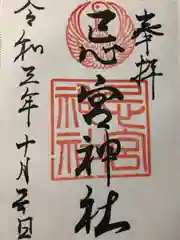 奉拝
忌宮神社
忌宮
神社
令和三年十月日